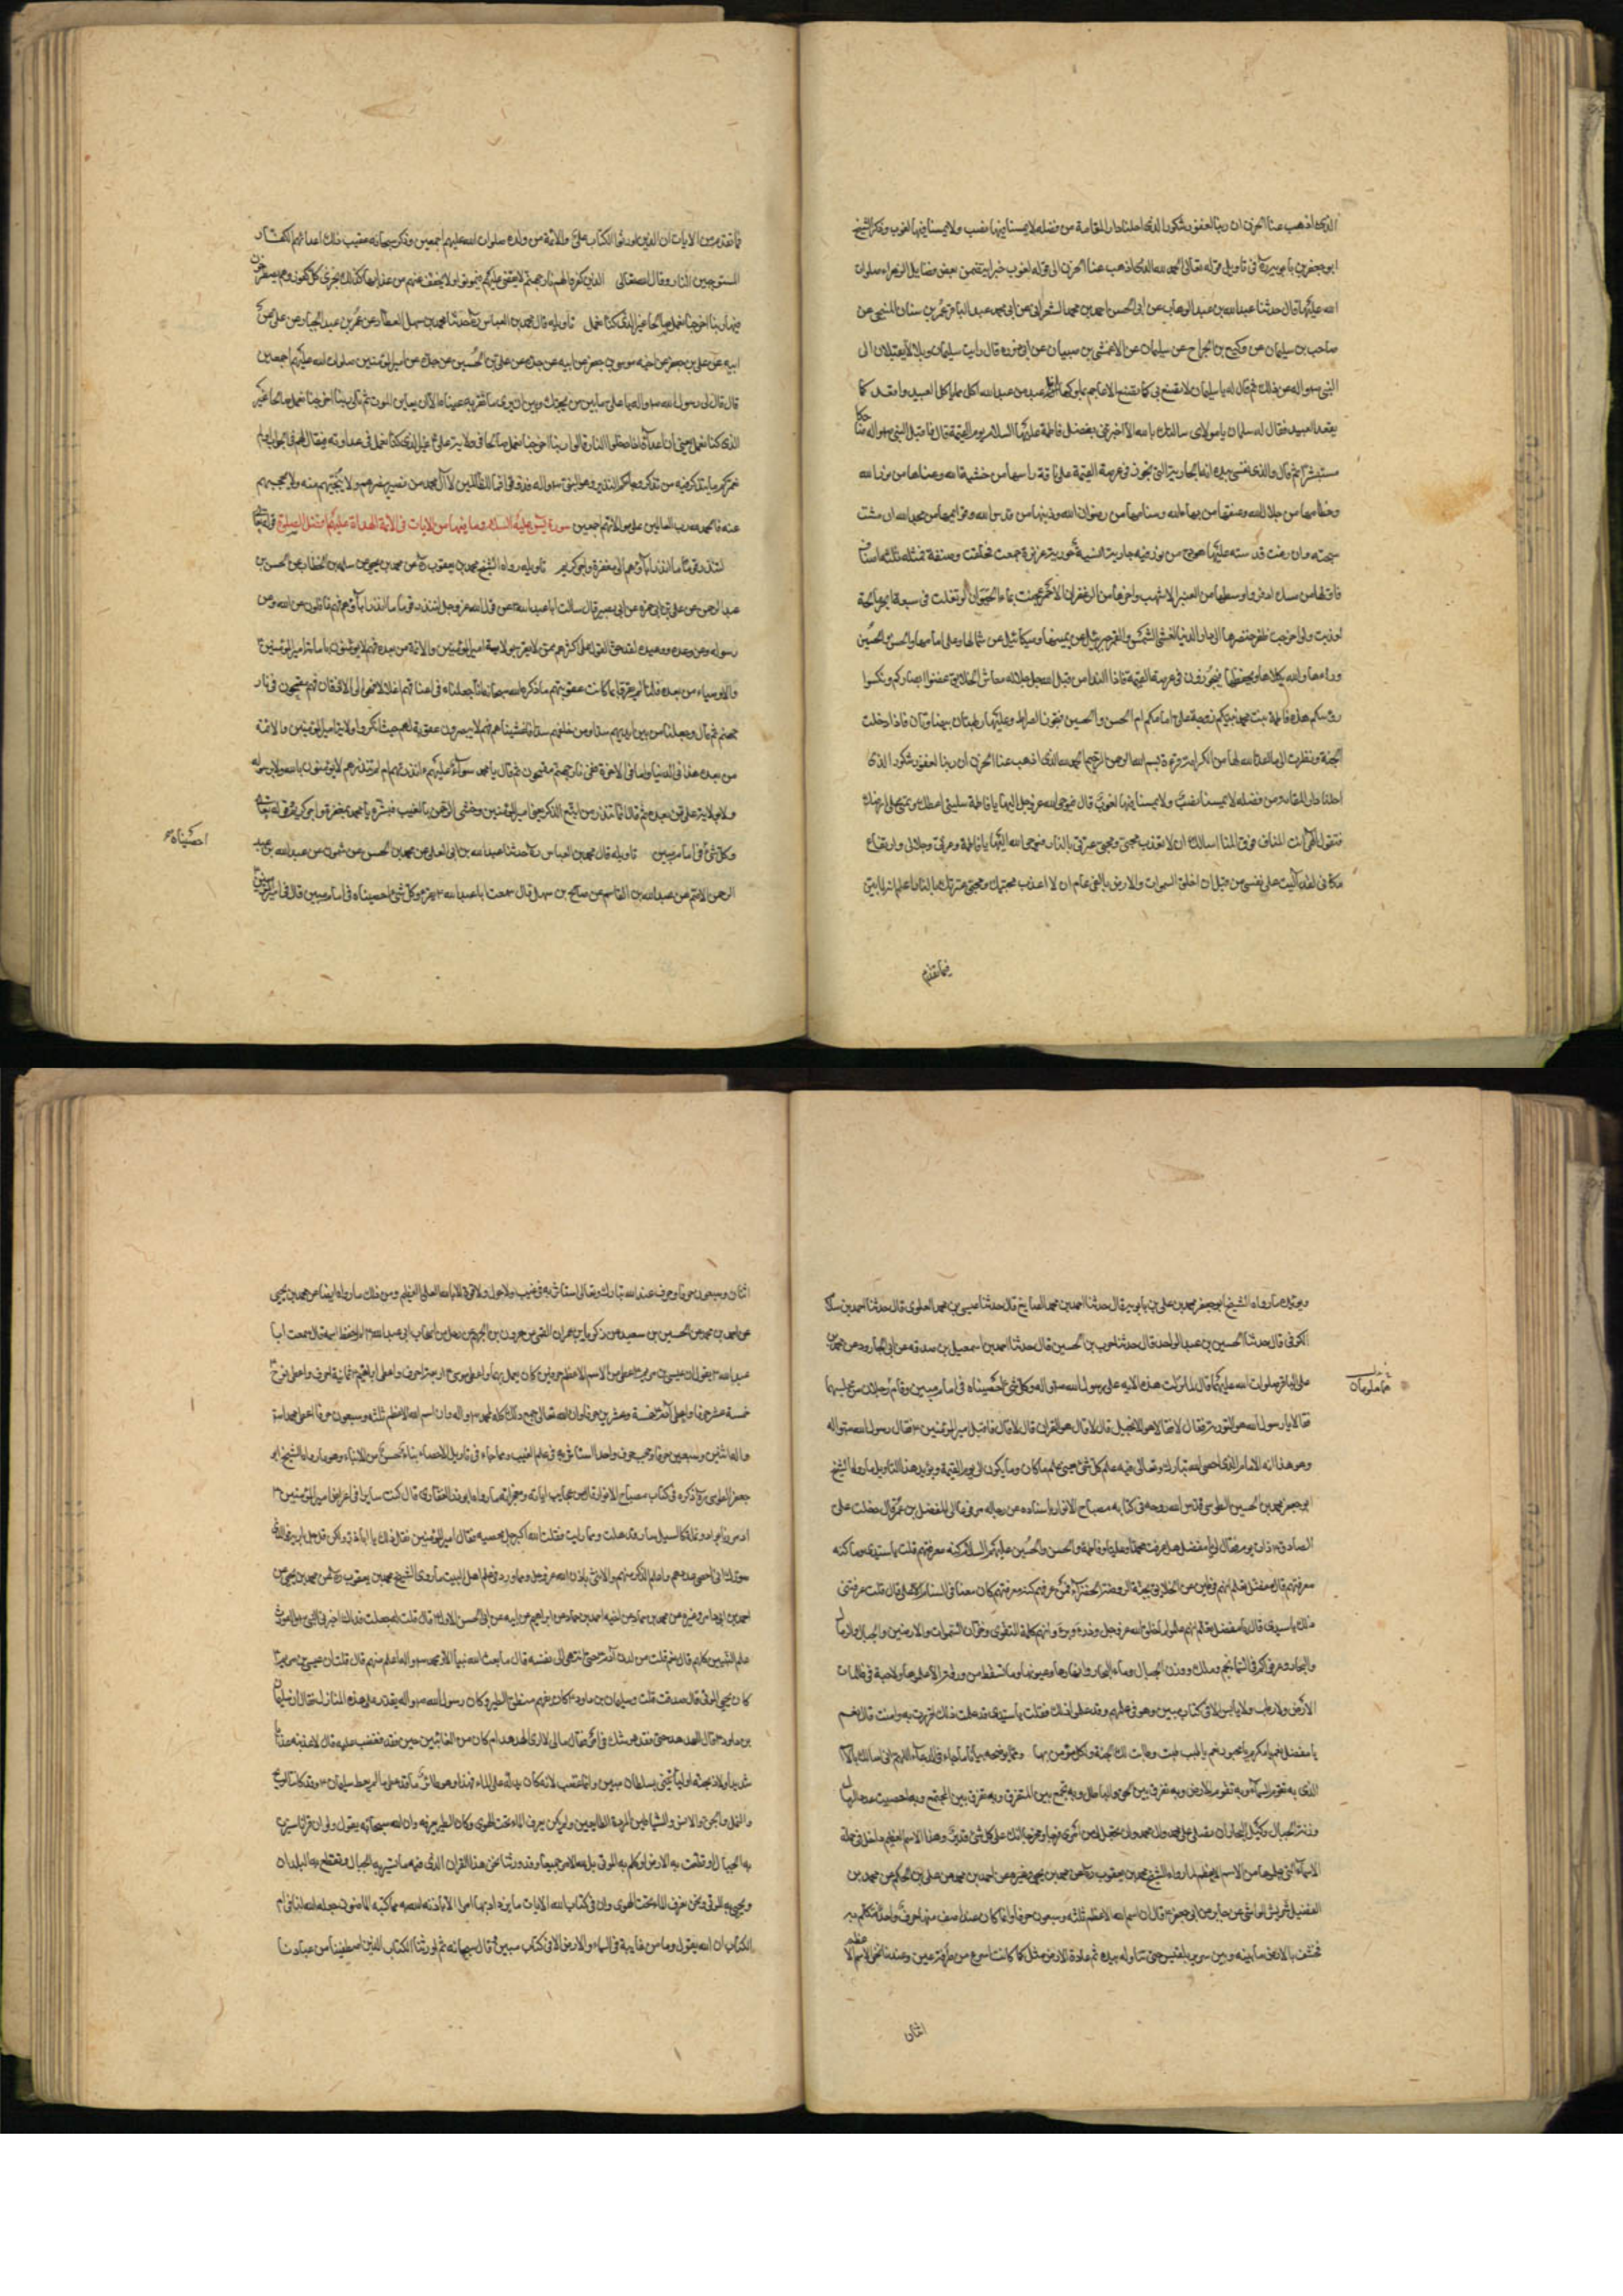 الذي اذهب عنا الحزن ان ربنا لغفور شكور الذي احلنا دار المقامة من فضله لا يمسنا فيها نصب ولا يمسنا فيها لغوب وذكر الشيخ
ابو جعفر بن بابويه ره في تاويل قوله تعالى الحمد لله الذي اذهب عنا الحزن الى قوله لغوب خبرا يتضمن بعض فضايل الزهراء صلوات
الله عليها قال حدثنا عبد الله بن عبد الوهاب عن ابي الحسن احمد بن محمد الشعراني عن ابي محمد عبد الباقي عمر بن سنان المنبجي عن
حاجب بن سليمان عن وكيع بن الجراح عن سليمان عن الاعمش بن ظبيان عن ابي ذر ره قال رايت سلمان وبلالا يقبلان الى
النبي ص واله
يقعد العبيد فقال له سلمان يا مولاي سالتك بالله الا اخبرتني بفضل فاطمة عليها السلام يوم القيمة قال فاقبل النبي ص واله ضاحكا
مستبشرا ثم قال والذي نفسي بيده انها الجارية التي تجوز في عرصة القيمة على ناقة راسها من خشية الله وعيناها من نور الله
وخطامها من جلال الله وعنقها من بهاء الله وسنامها من رضوان الله وذنبها من قدس الله وقوايمها من مجد الله ان مشت
سبحت وان رغت قدست عليها هودج من نور فيه جارية انسية حورية عزيزة جمعت فخلقت وصنعت فمثلت ثلثة اصناف
فاولها من مسك اذفر واوسطها من العنبر الاشهب واخرها من الزعفران الاحمر عجنت بماء الحيوان لو تفلت في سبعة ابحر مالحة
لعذبت ولو اخرجت ظفر خنصرها الى دار الدنيا لغشي الشمس والقمر جبرئيل عن يمينها وميكائيل عن شمالها وعلى امامها والحسن والحسين
وراءها والله يكلاها ويحفظها فيجوزون في عرصة القيمة فاذا النداء من قبل الله جل جلاله معاشر الخلايق غضوا ابصاركم ونكسوا
رؤسكم هذه فاطمة بنت محمد نبيكم زوجة على امامكم ام الحسن والحسين فتجوز الصراط وعليها ريطتان بيضاوتان فاذا دخلت
الجنة ونظرت الى ما اعد الله لها من الكرامة قرءت بسم الله الرحمن الرحيم الحمد لله الذي اذهب عنا الحزن ان ربنا لغفور شكور الذي
احلنا دار المقامة من فضله لا يمسنا فيها نصب ولا يمسنا فيها لغوب قال فيوحي الله عز وجل اليها يا فاطمة سليني اعطك وتمني على ارضك
فتقول الهي انت المنى وفوق المنى اسالك ان لا تعذب محبي ومحبي عترتي بالنار فيوحي الله اليها يا فاطمة وعزتي وجلالي وارتفاع
مكاني لقد آليت على نفسي من قبل ان اخلق السموات والارض بالفي عام ان لا اعذب محبيك ومحبي عترتك بالنار
فيما تقدم
فيما تقدم من الايات ان الذين اورثوا الكتاب على والائمة من ولده صلوات الله عليهم اجمعين وذكر سبحانه عقيب ذلك اعداءهم الكفار
المستوجبين النار وقال الله تعالى والذين كفروا لهم نار جهنم لا يقضى عليهم فيموتوا ولا يخفف عنهم من عذابها كذلك نجزي كل كفور وهم يصطرخون
فيها ربنا اخرجنا نعمل صالحا غير الذي كنا نعمل تاويله قال محمد بن العباس ره حدثنا محمد بن سهل العطار عن عمر بن عبد الجبار عن
ابيه عن علي بن جعفر عن اخيه موسى بن جعفر عن ابيه عن جده عن علي بن الحسين عن جده عن امير المؤمنين صلوات الله عليهم اجمعين
قال قال لي رسول الله ص واله يا على ما بين من يحبك وبين ان يرى ما تقر به عيناه الا ان يعاين الموت ثم تلا ربنا اخرجنا نعمل صالحا غير
الذي كنا نعمل يعني ان اعداءه اذا دخلوا النار قالوا ربنا اخرجنا نعمل صالحا في ولاية علي غير الذي كنا نعمل في عداوته فيقال لهم في الجواب اولم
نعمركم ما يتذكر فيه من تذكر وجاءكم النذير وهو النبي ص واله فذوقوا فما للظالمين لآل محمد من نصير ينصرهم ولا ينجيهم منه ولا يحجبهم
عنه سورة يس عليه السلام وما فيها من الايات في الائمة الهداة عليهم افضل الصلوة قوله تعالى
لتنذر قوما ما انذر اباؤهم الى بمغفرة واجر كريم تاويله رواه الشيخ محمد بن يعقوب ره عن محمد بن يحيى عن سلمة بن الخطاب عن الحسن بن
عبد الرحمن عن علي بن ابي حمزه عن ابي بصير قال سالت ابا عبد الله ع عن قول الله عز وجل لتنذر قوما ما انذر اباؤهم فهم غافلون عن الله وعن
رسوله وعن وعده ووعيده لقد حق القول على اكثرهم ممن لا يقر بولاية امير المؤمنين والائمة من بعده فهم لا يؤمنون بامامة امير المؤمنين
والاوصياء من بعده فلما لم يقروا كانت عقوبتهم ما ذكره الله سبحانه انا جعلنا في اعناقهم اغلالا فهي الى الاذقان فهم مقمحون في نار
جهنم ثم قال وجعلنا من بين ايديهم سدا ومن خلفهم سدا فاغشيناهم فهم لا يبصرون عقوبة لهم حيث انكروا ولاية امير المؤمنين والائمة
من بعده هذا في الدنيا واما في الاخرة ففي نار جهنم مقمحون ثم قال يا محمد سواء عليهم ءانذرتهم ام لم تنذرهم لا يؤمنون بالله ولا برسوله
ولا بولاية على ومن بعده ثم قال انما تنذر من اتبع الذكر يعني امير المؤمنين وخشي الرحمن بالغيب فبشره يا محمد بمغفرة واجر كريم قوله تعالى
وكل شئ احصيناه في امام مبين تاويله قال محمد بن العباس ره حدثنا عبد الله بن ابي العلا عن محمد بن الحسن بن شمون عن عبد الله بن عبد
الرحمن الاصم عن عبد الله بن القاسم عن صالح بن سهل قال سمعت ابا عبد الله ع يقرء وكل شئ احصيناه في امام مبين قال في امير المؤمنين
احصيناه
ويؤيده ما رواه الشيخ ابو جعفر محمد بن علي بن بابويه قال حدثنا احمد بن محمد الصايغ قال حدثنا عيسى بن محمد العلوي قال حدثنا احمد بن سلام
الكوفي قال حدثنا الحسين بن عبد الواحد قال حدثنا حرب بن الحسين قال حدثنا احمد بن اسمعيل بن صدقه عن ابي الجارود عن محمد بن
علي الباقر صلوات الله عليهما قال لما نزلت هذه الايه على رسول الله ص واله وكل شئ احصيناه في امام مبين وقام رجلان من مجلسهما
فقالا يا رسول الله هو التورية فقال لا فقالا هو الانجيل قال لا قالا هو القران قال لا قال فاقبل امير المؤمنين ع فقال رسول الله ص واله
وهو هذا انه الامام الذي احصى الله تبارك وتعالى فيه علم كل شئ يعني علم ما كان وما يكون الى يوم القيمة ويؤيد هذا التاويل ما رواه الشيخ
ابو جعفر محمد بن الحسن الطوسي قدس الله روحه في كتابه مصباح الانوار باسناده عن رجاله مرفوعا الى المفضل بن عمر قال دخلت على
الصادق ع ذات يوم فقال لي يا مفضل هل عرفت محمدا وعليا وفاطمة والحسن والحسين عليهم السلام كنه معرفتهم قلت يا سيدي وما كنه
معرفتهم قال يا مفضل
ذلك يا سيدي قال يا مفضل تعلم انهم علموا ما خلق الله عز وجل وذراه وبراه وانهم كلمة التقوى وخزان السموات والارضين والجبال والرمال
والبحار وعرفوا كم في السماء نجم وملك ووزن الجبال وماء البحار وانهارها وعيونها وما تسقط من ورقة الا علموها ولا حبة في ظلمات
الارض ولا رطب ولا يابس الا في كتاب مبين وهو في علمهم وقد علموا ذلك فقلت يا سيدي قد علمت ذلك واقررت به وامنت قال نعم
يا مفضل نعم يا مكرم نعم يا محبور نعم يا طيب طبت وطابت لك الجنة ولكل مؤمن بها
الذي به تقوم السماء وبه تقوم الارض وبه تفرق بين الحق والباطل وبه تجمع بين المتفرق وبه تفرق بين المجتمع وبه احصيت عدد الرمال
وزنة الجبال وكيل البحار ان تصلي على محمد وال محمد وان تجعل لي من امري فرجا ومخرجا انك على كل شئ قدير وهذا الاسم العظيم داخل في جملة
محمد بن يعقوب ره عن محمد بن يحيى وغيره عن احمد بن محمد عن علي بن الحكم عن محمد بن
الفضيل عن شريس الوابشي عن جابر عن ابي جعفر ع قال ان اسم الله الاعظم ثلثه وسبعون حرفا وانما كان عند اصف منها حرف واحد فتكلم به
فخسف بالارض ما بينه وبين سرير بلقيس حتى تناوله بيده ثم عادت الارض مثل ما كانت اسرع من طرفة عين وعندنا نحن الاسم الاعظم
اثنان
اثنان وسبعون حرفا وحرف عند الله تبارك وتعالى استاثر به في غيب ولا حول ولا قوة الا بالله العلى العظيم ومن ذلك ما رواه ايضا عن محمد بن يحيى
عن احمد بن محمد عن الحسين بن سعيد عن زكريا بن عمران القمي عن هرون بن الجهم عن رجل من اصحاب ابي عبد الله ع لم احفظ اسمه قال سمعت ابا
عبد الله ع يقول ان عيسى بن مريم ع اعطي من الاسم الاعظم حرفين كان يعمل بهما واعطي موسى ع اربعة احرف واعطي ابراهيم ع ثمانية احرف واعطي نوح ع
خمسة عشر حرفا واعطي آدم خمسة وعشرين حرفا وان الله تعالى جمع ذلك كله لمحمد ص واله وان اسم الله الاعظم ثلثه وسبعون حرفا اعطي محمدا ص
واله اثنين وسبعين حرفا وحجب حرف واحدا استاثر به في علم الغيب
جعفر الطوسي ره ذكره في كتاب مصباح الانوار قال من عجايب اياته ومعجزاته ما رواه ابو ذر الغفاري قال كنت سايرا في اغراض امير المؤمنين ع
اذ مررنا بواد ونمله كالسيل سار فذهلت مما رايت فقلت الله اكبر جل محصيه فقال امير المؤمنين لا تقل ذلك يا ابا ذر ولكن قل جل باريه فوالذي
صورك اني احصي عددهم واعلم الذكر منهم والانثى باذن الله عز وجل ومما ورد في علم اهل البيت ما روى الشيخ محمد بن يعقوب ره عن محمد بن يحيى عن
احمد بن ابي زاهر وغيره عن محمد بن حماد عن اخيه احمد بن حماد عن ابراهيم عن ابيه عن ابي الحسن الاول ع قال قلت له جعلت فداك اخبرني عن النبي ص واله ورث
علم النبيين كلهم قال نعم قلت من لدن آدم حتى انتهى الى نفسه قال ما بعث الله نبيا الا ومحمد ص واله اعلم منهم قال قلت ان عيسى بن مريم
كان يحيي الموتى قال صدقت قلت وسليمان بن داود ع كان يفهم منطق الطير وكان رسول الله ص واله يقدر على هذه المنازل فقال ان سليمان
بن داود ع قال للهدهد حين فقده وشك في امره فقال مالي لا ارى الهدهد ام كان من الغائبين حين فقده فغضب عليه قال لاعذبنه عذابا
شديدا ولاذبحنه او لياتيني بسلطان مبين وانما غضب لانه كان يدله على الماء فهذا وهو طائر قد اعطي ما لم يعط سليمان ع وقد كانت الريح
والنمل والجن والانس والشياطين المردة له طائعين ولم يكن يعرف الماء تحت الهوى وكان الطير يعرفه وان الله سبحانه يقول ولو ان قرانا سيرت
به الجبال او قطعت به الارض او كلم به الموتى بل لله الامر جميعا وقد ورثنا نحن هذا القران الذي فيه ما تسير به الجبال وتقطع به البلدان
ويحيى به الموتى ونحن نعرف الماء تحت الهوى وان في كتاب الله الايات ما يراد بها امر الا ان ياذن الله به مما كتبه الماضون جعله الله لنا في ام
الكتاب ان الله يقول وما من غايبة في السماء والارض الا في كتاب مبين ثم قال سبحانه ثم اورثنا الكتاب الذين اصطفينا من عبادنا